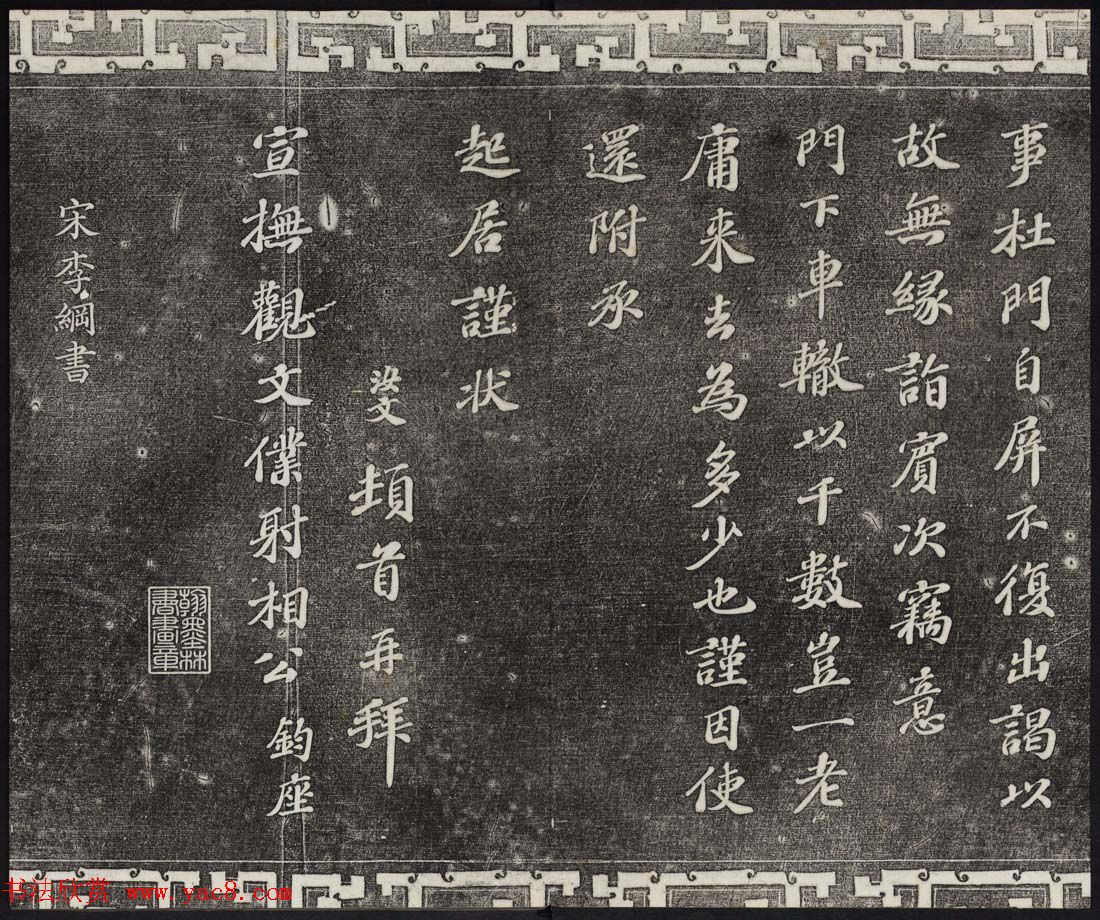 事杜門自屏不復出謁以
故無縁詣賓次竊意
門下車轍以千數豈一老
庸来去為多少也謹因使
還附承
起居謹状
汝文頓首再拜
宣撫觀文僕射相公鈞座
宋李綱書
翰墨林書畫章
书法欣赏 www.yac8.com